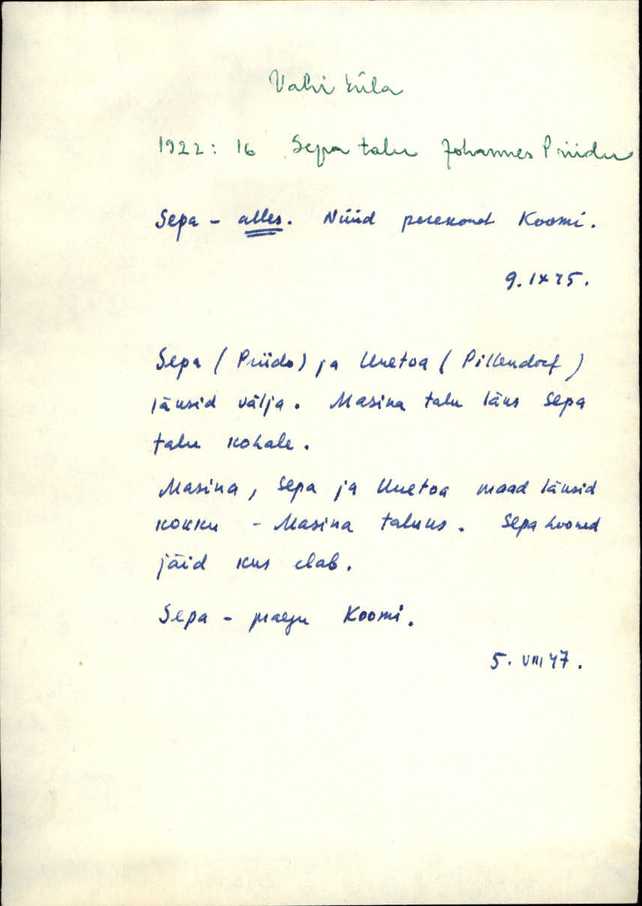 Vahi küla
1922: 16 Sepa talu Johannes Priidu
Sepa - alles. Nüüd perekond Koomi.
9. IX 75.
Sepa (Priido) ja Unetoa (Pillendorf)
läksid välja. Masina talu läks Sepa
talu kohale.
Masina, Sepa ja Unetoa maad läksid
kokku - Masina taluks. Sepa hooned
jäid kus elab.
Sepa - praegu Koomi.
5. VIII 47.